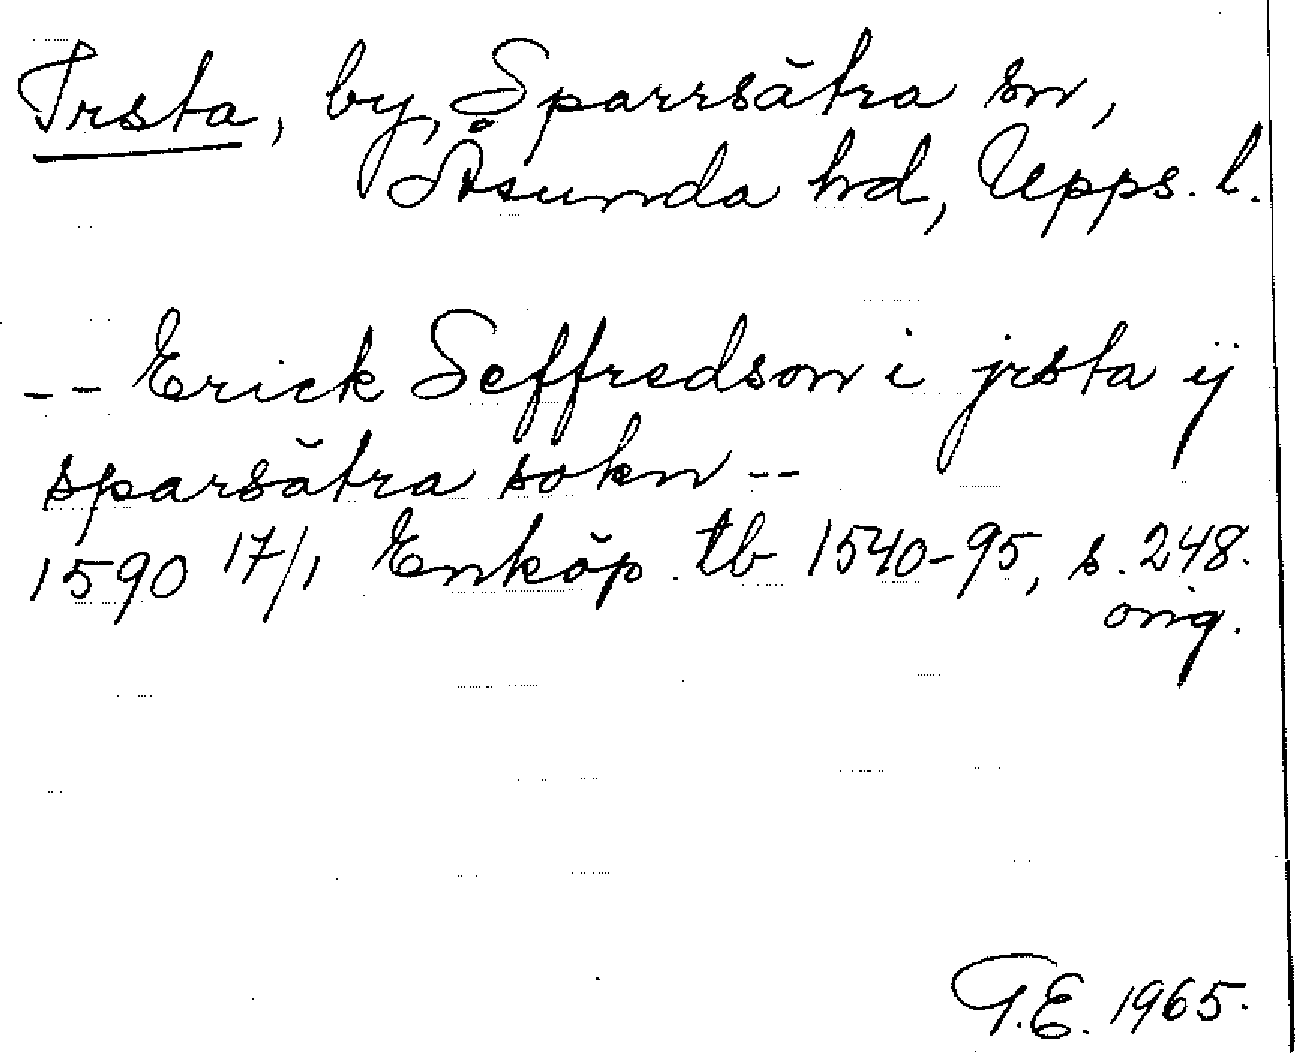 Irsta, by, Sparrsätra sn,
Åsunda hd, Upps. l.
-- Erick Seffredson i jrsta ij
sparsätra sokn --
1590 17/1 Enköp. tb 1540-95, s. 248.
orig.
T.E. 1965.